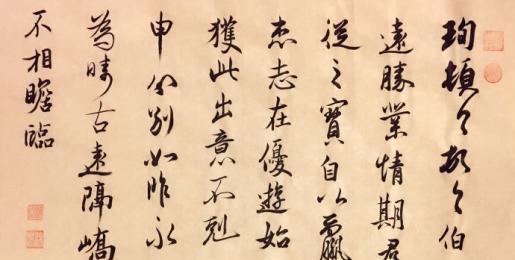 珣頓首頓首伯
遠勝業情期羣
從之寶自以羸
患志在優遊始
獲此出意不剋
申分別如昨永
為疇古遠隔嶠
不相瞻臨